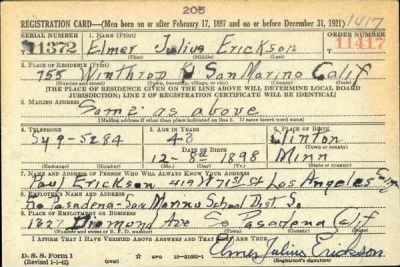 205
REGISTRATION CARD—(Men born on or after February 17, 1897 and on or before December 31, 1921) 1417
SERIAL NUMBER 1. NAME (Print) ORDER NUMBER
11372 Elmer Julius Erickson 11417
(First) (Middle) (Last)
2. PLACE OF RESIDENCE (Print)
755 Winthrop San Marino Calif
(Number and street) (Town, township, village, or city) (County) (State)
[THE PLACE OF RESIDENCE GIVEN ON THE LINE ABOVE WILL DETERMINE LOCAL BOARD
JURISDICTION; LINE 2 OF REGISTRATION CERTIFICATE WILL BE IDENTICAL]
3. MAILING ADDRESS
Same as above
[Mailing address if other than place indicated on line 2. If same insert word same]
4. TELEPHONE 5. AGE IN YEARS 6. PLACE OF BIRTH
Sy 9-5284 43 Clinton
DATE OF BIRTH (Town or county)
12-8th 1898 Minn
(Exchange) (Number) (Mo.) (Day) (Yr.) (State or country)
7. NAME AND ADDRESS OF PERSON WHO WILL ALWAYS KNOW YOUR ADDRESS
Paul Erickson 419 W 71st St Los Angeles
8. EMPLOYER'S NAME AND ADDRESS
So Pasadena-San Marino School Dist
9. PLACE OF EMPLOYMENT OR BUSINESS
Diamond Ave So Pasadena Calif
(Number and street or R. F. D. number) (Town) (County) (State)
I AFFIRM THAT I HAVE VERIFIED ABOVE ANSWERS AND THAT THEY ARE TRUE.
D. S. S. Form 1
(Revised 1-1-42) Elmer Julius Erickson
(Registrant's signature)